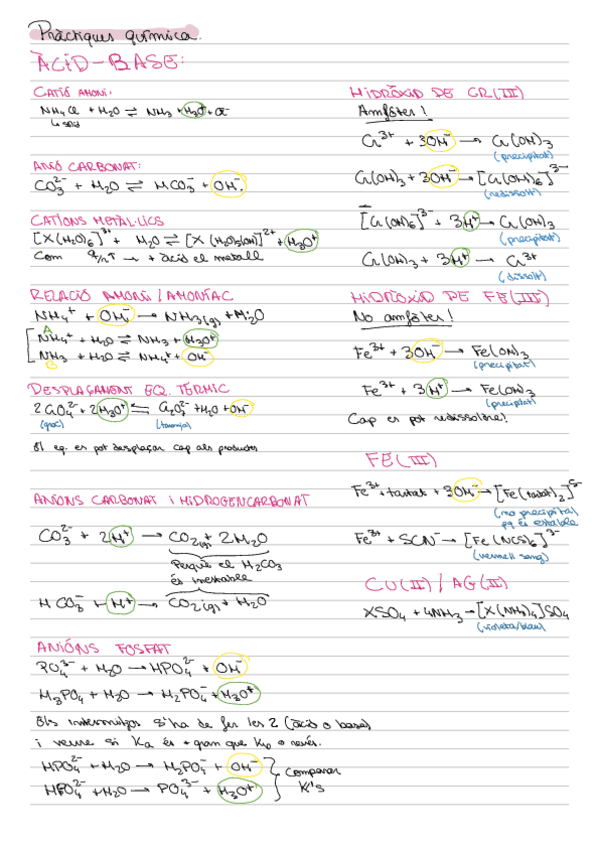 Pràctiques química.
ÀCID-BASE:
CATIÓ AMONI:
NH₄Cl + H₂O ⇌ NH₃ + H₃O⁺ + Cl⁻
ANIÓ CARBONAT:
CO₃²⁻ + H₂O ⇌ HCO₃⁻ + OH⁻.
CATIONS METAL·LICS
[X(H₂O)₆]³⁺ + H₂O ⇌ [X(H₂O)₅(OH)]²⁺ + H₃O⁺
Com q/r↑ → + àcid el metall
RELACIÓ AMONI/AMONÍAC
NH₄⁺ + OH⁻ → NH₃(g) + H₂O
A
NH₄⁺ + H₂O ⇌ NH₃ + H₃O⁺
NH₃ + H₂O ⇌ NH₄⁺ + OH⁻
B
DESPLAÇAMENT EQ. TÈRMIC
2CrO₄²⁻ + 2H₃O⁺ ⇌ Cr₂O₇²⁻ + H₂O + OH⁻
(groc) (taronja)
El eq. es pot desplaçar cap als productes
ANIONS CARBONAT i HIDROGENCARBONAT
CO₃²⁻ + 2H⁺ → CO₂(g) + 2H₂O
Perquè el H₂CO₃
és inestable
HCO₃⁻ + H⁺ → CO₂(g) + H₂O
ANIÓNS FOSFAT
PO₄³⁻ + H₂O → HPO₄²⁻ + OH⁻
H₃PO₄ + H₂O → H₂PO₄⁻ + H₃O⁺
Els intermitjos s'ha de fer les 2 (àcid o base)
i veure si Ka és + gran que Kb o revés.
HPO₄²⁻ + H₂O → H₂PO₄⁻ + OH⁻
HPO₄²⁻ + H₂O → PO₄³⁻ + H₃O⁺
Comparar
K's
HIDRÒXID DE CR(III)
Amfòter!
Cr³⁺ + 3OH⁻ → Cr(OH)₃
(precipitat)
Cr(OH)₃ + 3OH⁻ → [Cr(OH)₆]³⁻
(redissolt)
[Cr(OH)₆]³⁻ + 3H⁺ → Cr(OH)₃
(precipitat)
Cr(OH)₃ + 3H⁺ → Cr³⁺
(dissolt)
HIDRÒXID DE FE(III)
No amfòter!
Fe³⁺ + 3OH⁻ → Fe(OH)₃
(precipitat)
Fe³⁺ + 3H⁺ → Fe(OH)₃
(precipitat)
Cap es pot redissoldre!
FE(III)
Fe³⁺ + tartrat + 3OH⁻ → [Fe(tartrat)₂]
(no precipita)
pq és estable
Fe³⁺ + SCN⁻ → [Fe(NCS)₆]³⁻
(vermell sang)
CU(II)/AG(II)
XSO₄ + 4NH₃ → [X(NH₃)₄]SO₄
(violeta/blau)